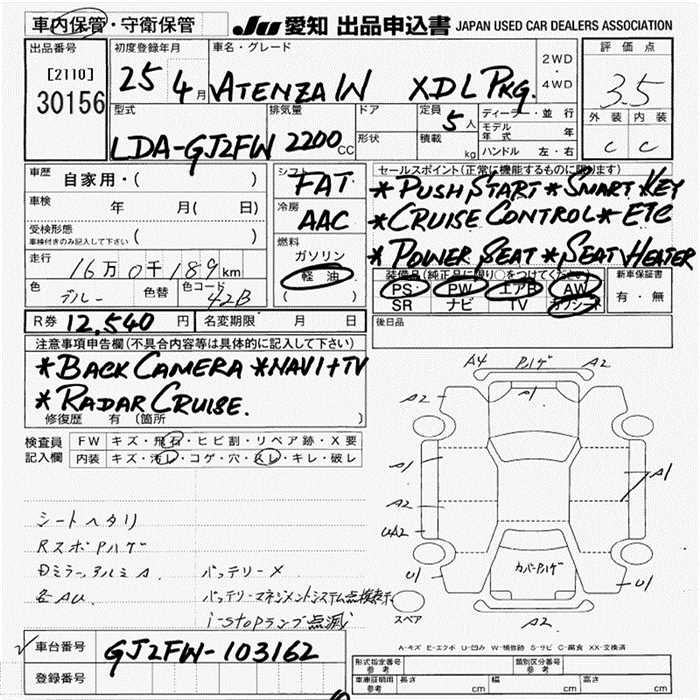 車内保管・守衛保管
JU 愛知 出品申込書 JAPAN USED CAR DEALERS ASSOCIATION
出品番号 初度登録年月 車名・グレード 2WD・4WD 評価点
[2110]
30156
25 4月 ATENZA W XDL PKG. 3.5
型式 排気量 ドア 定員 5人 ディーラー・並行 外装 内装
LDA-GJ2FW 2200CC 形状 積載 kg モデル年式 年 C C
ハンドル 左・右
車歴 自家用・( ) シフト FAT セールスポイント(正常に機能するものに限ります)
車検 年 月( 日) 冷房 AAC *PUSH START *SMART KEY
受検形態 車検付きのみ記入して下さい ( ) *CRUISE CONTROL *ETC
燃料 ガソリン 軽油 ( ) *POWER SEAT *SEAT HEATER
走行 16万0千189km
装備品(純正品に限り○をつけてください) 新車保証書
色 ブルー 色替 色コード 42B PS PW エアB AW 有・無
SR ナビ TV カワシート
R券 12,540円 名変期限 月 日 後日品
注意事項申告欄(不具合内容等は具体的に記入して下さい)
*BACK CAMERA *NAVI+TV
*RADAR CRUISE.
修復歴 有 (箇所 )
検査員記入欄 FW キズ・飛石・ヒビ割・リペア跡・X要
内装 キズ・汚レ・コゲ・穴・スレ・キレ・破レ
A4 Pハゲ A2
A2 A1 A2
A1 A1
A2
UA2
U1 カバーPハゲ U1
スペア A2
シートヘタリ
RスポPハゲ
バッテリーメ
各AU バッテリーマネジメントシステム点検表示
i-stopランプ点滅
車台番号 GJ2FW-103162
登録番号
A-キズ E-エクボ U-凹み W-補修跡 S-サビ C-腐食 XX-交換済
形式指定番号 参考 類別区分番号 参考
車庫証明用 参考 長さ cm 幅 cm 高さ cm